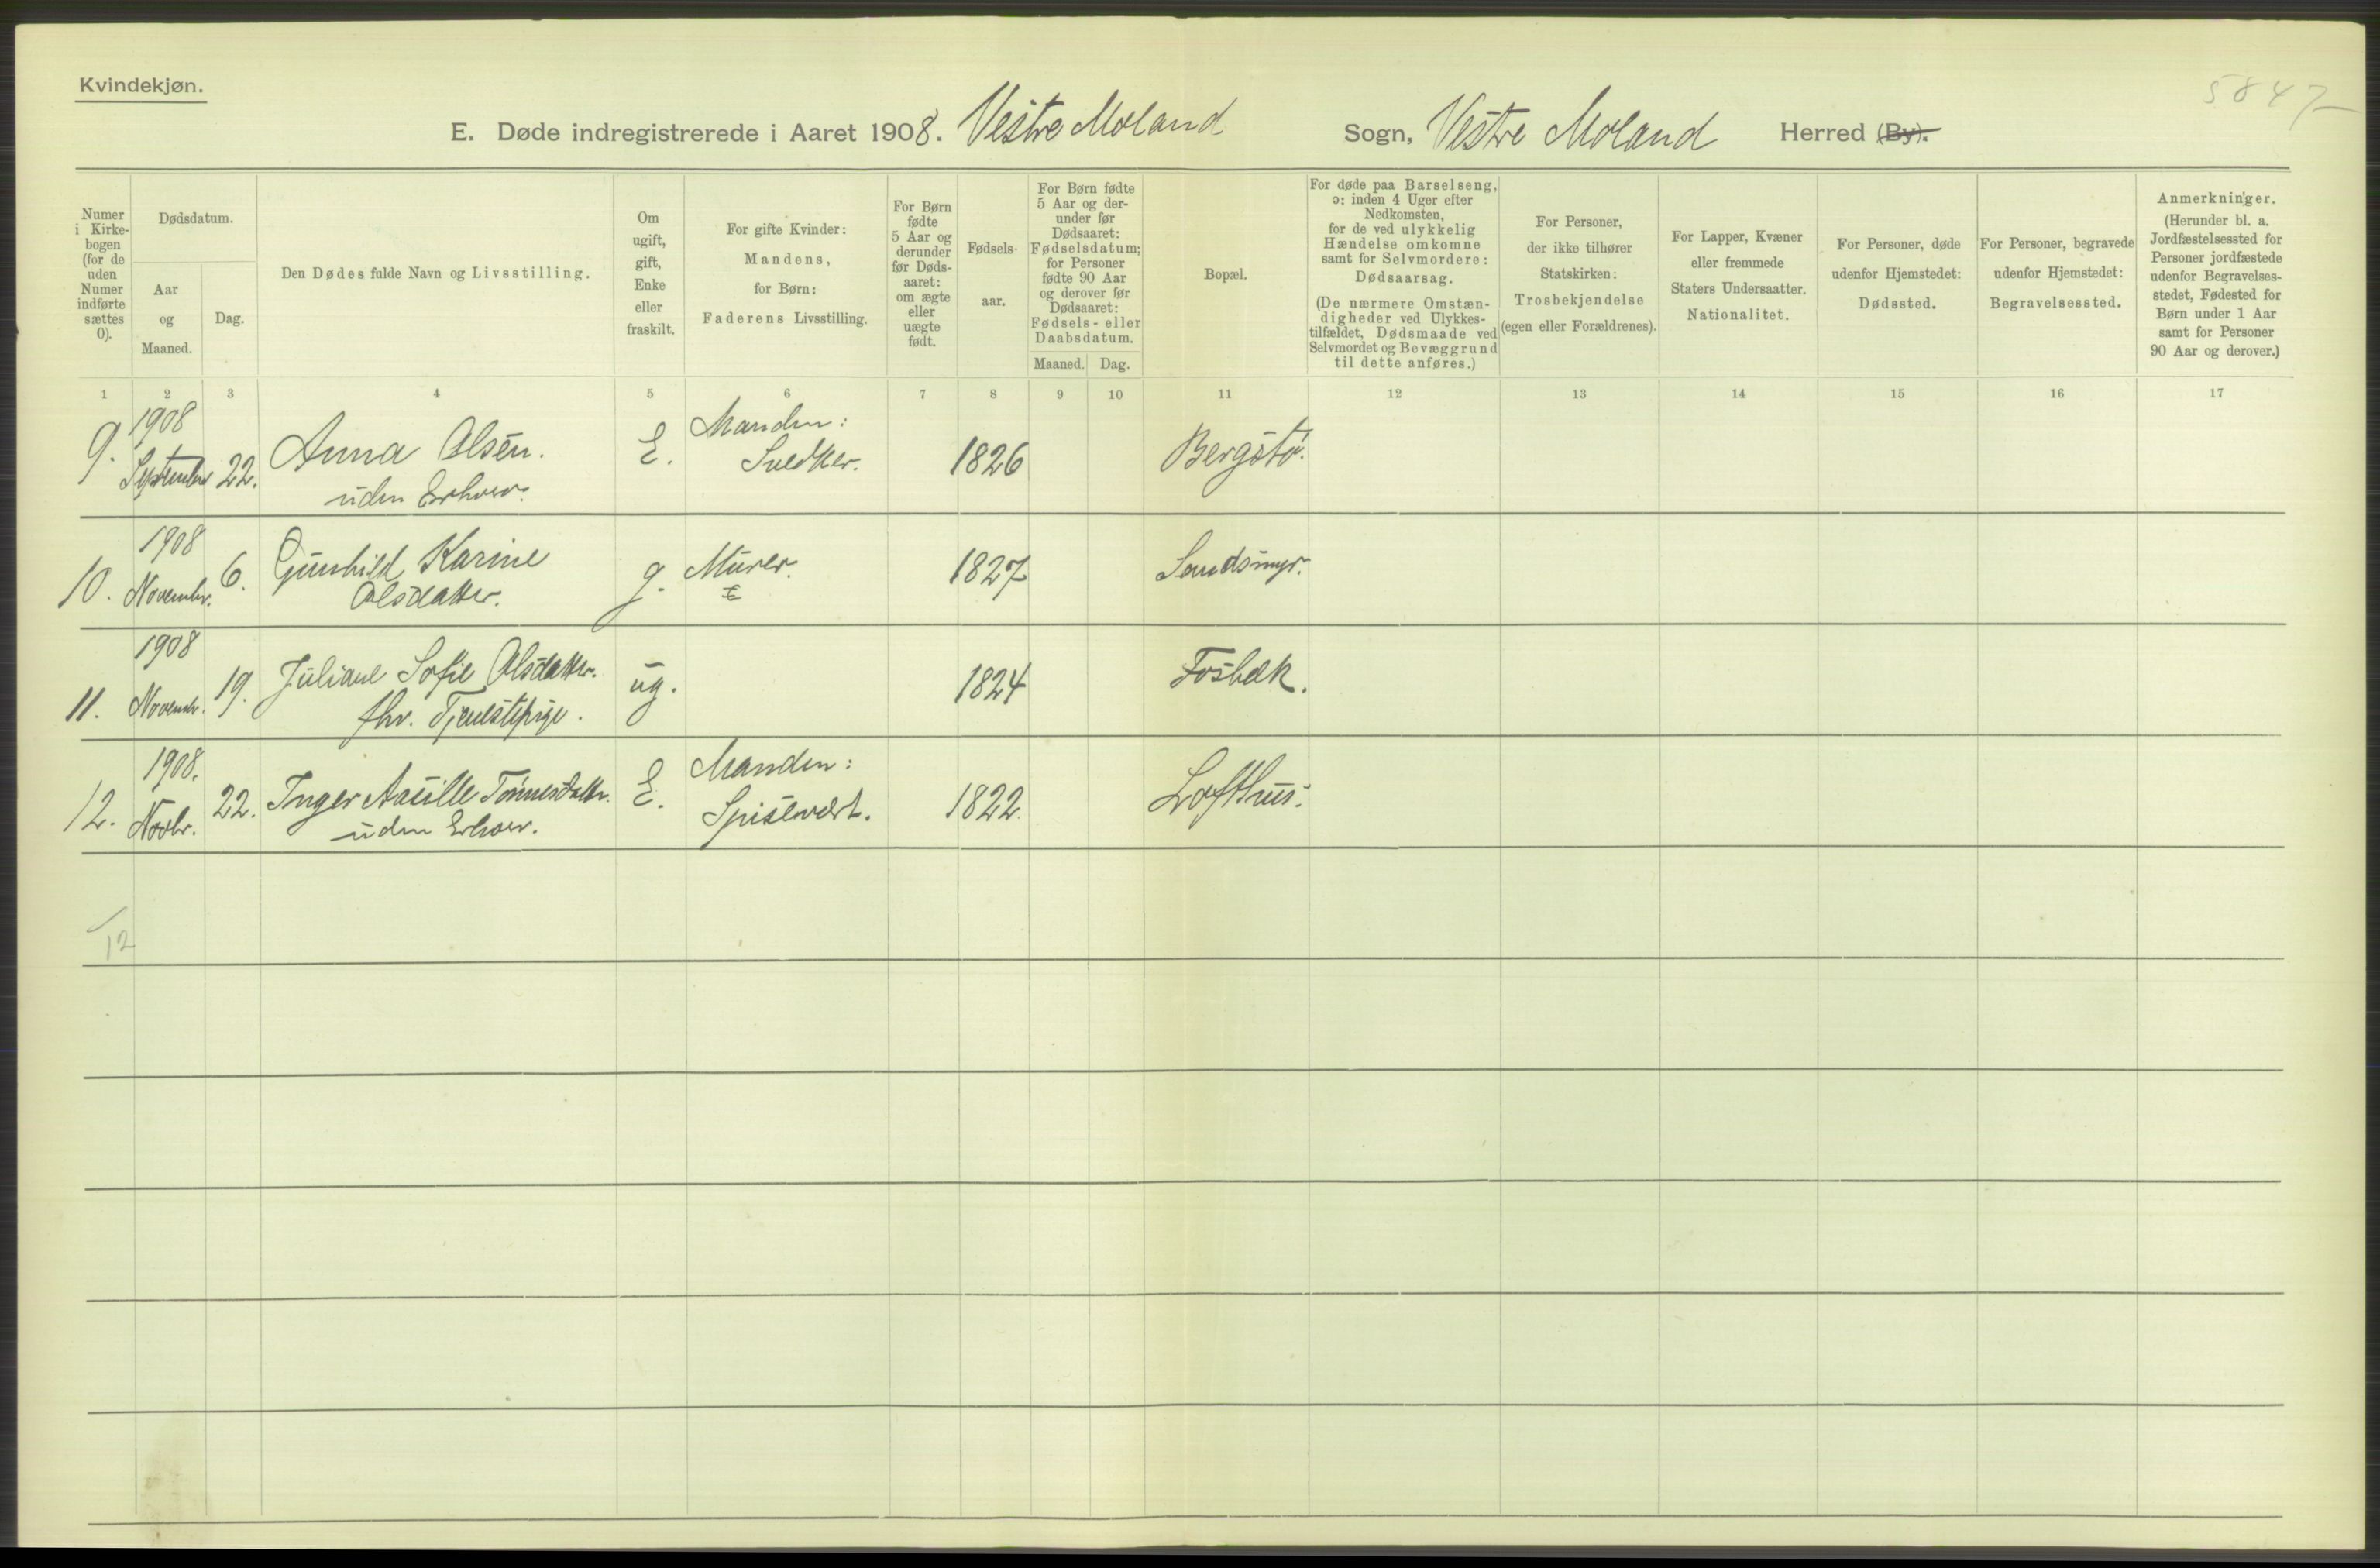 Kvindekjøn.
5847
E. Døde indregistrerede i Aaret 1908. Vestre Moland Sogn, Vestre Moland Herred (By).
Numer
i Kirke-
bogen
(for de
uden
Numer
indførte
sættes
0).
Dødsdatum.
Aar
og
Maaned.
Dag.
Den Dødes fulde Navn og Livsstilling.
Om
ugift,
gift,
Enke
eller
fraskilt.
For gifte Kvinder:
Mandens,
for Børn:
Faderens Livsstilling.
For Børn
fødte
5 Aar og
derunder
før Døds-
aaret:
om ægte
eller
uægte
født.
Fødsels-
aar.
For Børn fødte
5 Aar og der-
under før
Dødsaaret:
Fødselsdatum;
for Personer
fødte 90 Aar
og derover før
Dødsaaret:
Fødsels- eller
Daabsdatum.
Maaned. Dag.
Bopæl.
For døde paa Barselseng,
ɔ: inden 4 Uger efter
Nedkomsten,
for de ved ulykkelig
Hændelse omkomne
samt for Selvmordere:
Dødsaarsag.
(De nærmere Omstæn-
digheder ved Ulykkes-
tilfældet, Dødsmaade ved
Selvmordet og Bevæggrund
til dette anføres.)
For Personer,
der ikke tilhører
Statskirken:
Trosbekjendelse
(egen eller Forældrenes).
For Lapper, Kvæner
eller fremmede
Staters Undersaatter.
Nationalitet.
For Personer, døde
udenfor Hjemstedet:
Dødssted.
For Personer, begravede
udenfor Hjemstedet:
Begravelsessted.
Anmerkninger.
(Herunder bl. a.
Jordfæstelsessted for
Personer jordfæstede
udenfor Begravelses-
stedet, Fødested for
Børn under 1 Aar
samt for Personer
90 Aar og derover.)
1 2 3 4 5 6 7 8 9 10 11 12 13 14 15 16 17
1908 Manden:
9. September 22. Anna Olsen. E. Snedker. 1826 Bergstø.
uden Erhverv.
1908 Gunhild Karine
10. Novembr. 6. Olsdatter. g. Murer. 1827 Sandsmyr.
1908
11. Novembr. 19. Juliane Sofie Olsdatter. ug. 1824 Fosbæk.
fhv. Tjenestepige.
1908. Manden:
12. Novbr. 22. Inger Aasille Tønnesdattr. E. Spisevært. 1822. Lofthus.
uden Erhverv.
12